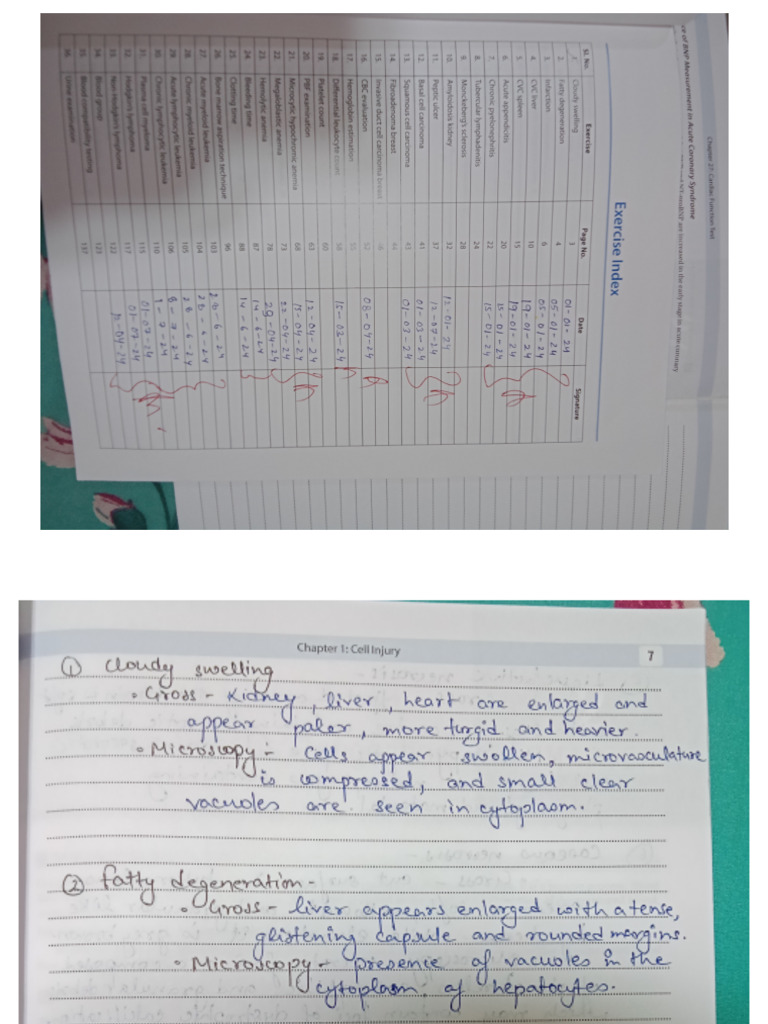 Chapter 27: Cardiac Function Test
of BNP Measurement in Acute Coronary Syndrome
are increased in the early stage in acute coronary
Exercise Index
Sl. No. Exercise Page No. Date Signature
1. Cloudy swelling 3 01-01-24
2. Fatty degeneration 4 05-01-24
3. Infarction 9 05-01-24
4. CVC liver 10 19-01-24
5. CVC spleen 15 19-01-24
6. Acute appendicitis 20 15-01-24
7. Chronic pyelonephritis 22 15-01-24
8. Tubercular lymphadenitis 24
9. Monckeberg's sclerosis 28
10. Amyloidosis kidney 32 12-01-24
11. Peptic ulcer 37 12-07-24
12. Basal cell carcinoma 41 01-03-24
13. Squamous cell carcinoma 43 01-03-24
14. Fibroadenoma breast 44
15. Invasive duct cell carcinoma breast
16. CBC evaluation 52 08-04-24
17. Hemoglobin estimation
18. Differential leukocyte count 58 15-03-24
19. Platelet count 60
20. PBF examination 63 12-04-24
21. Microcytic hypochromic anemia 68 15-04-24
22. Megaloblastic anemia 73 22-04-24
23. Hemolytic anemia 78 29-04-24
24. Bleeding time 87 14-6-24
25. Clotting time 88 14-6-24
26. Bone marrow aspiration technique 96
27. Acute myeloid leukemia 103 28-6-24
28. Chronic myeloid leukemia 104 28-6-24
29. Acute lymphocytic leukemia 105 28-6-24
30. Chronic lymphocytic leukemia 106 8-7-24
31. Plasma cell myeloma 110 1-7-24
32. Hodgkin's lymphoma 115 01-07-24
33. Non-Hodgkin's lymphoma 117 01-07-24
34. Blood group 122
35. Blood compatibility testing 123
36. Urine examination 137
Chapter 1: Cell Injury 7
① Cloudy swelling
• Gross - Kidney, liver, heart are enlarged and
appear paler, more turgid and heavier.
• Microscopy :- Cells appear swollen, microvasculature
is compressed, and small clear
vacuoles are seen in cytoplasm.
② Fatty degeneration -
• Gross - liver appears enlarged with a tense,
glistening capsule and rounded margins.
• Microscopy - presence of vacuoles in the
cytoplasm of hepatocytes.